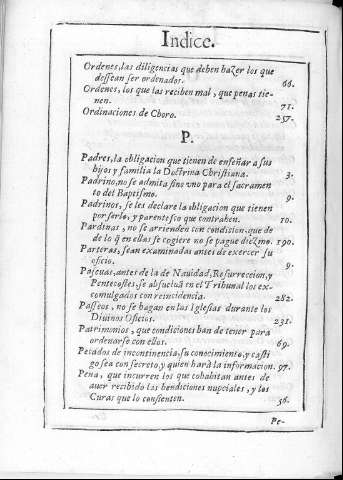 Indice.
Ordenes, las diligencias que deben hazer los que
dessean ser ordenados. 66.
Ordenes, los que las reciben mal, que penas tie-
nen. 71.
Ordinaciones de Choro. 257.
P.
Padres, la obligacion que tienen de enseñar a sus
hijos y familia la Doctrina Christiana. 3.
Padrino, no se admita sino vno para el sacramen
to del Baptismo. 9.
Padrinos, se les declare la obligacion que tienen
por serlo, y parentesco que contrahen. 10.
Pardinas, no se arrienden con condicion, que de
de lo q̃ en ellas se cogiere no se pague diezmo. 190.
Parteras, sean examinadas antes de exercer su
oficio. 9.
Pascuas, antes de la de Nauidad, Resurreccion, y
Pentecostes, se absueluã en el Tribunal los ex-
comulgados con reincidencia. 282.
Passeos, no se hagan en las Iglesias durante los
Diuinos Oficios. 231.
Patrimonios, que condiciones han de tener para
ordenarse con ellos. 69.
Pecados de incontinencia, su conocimiento, y casti
go sea con secreto, y quien hará la informacion. 97.
Pena, que incurren los que cohabitan antes de
auer recibido las bendiciones nupciales, y los
Curas que lo consienten. 36.
Pe-